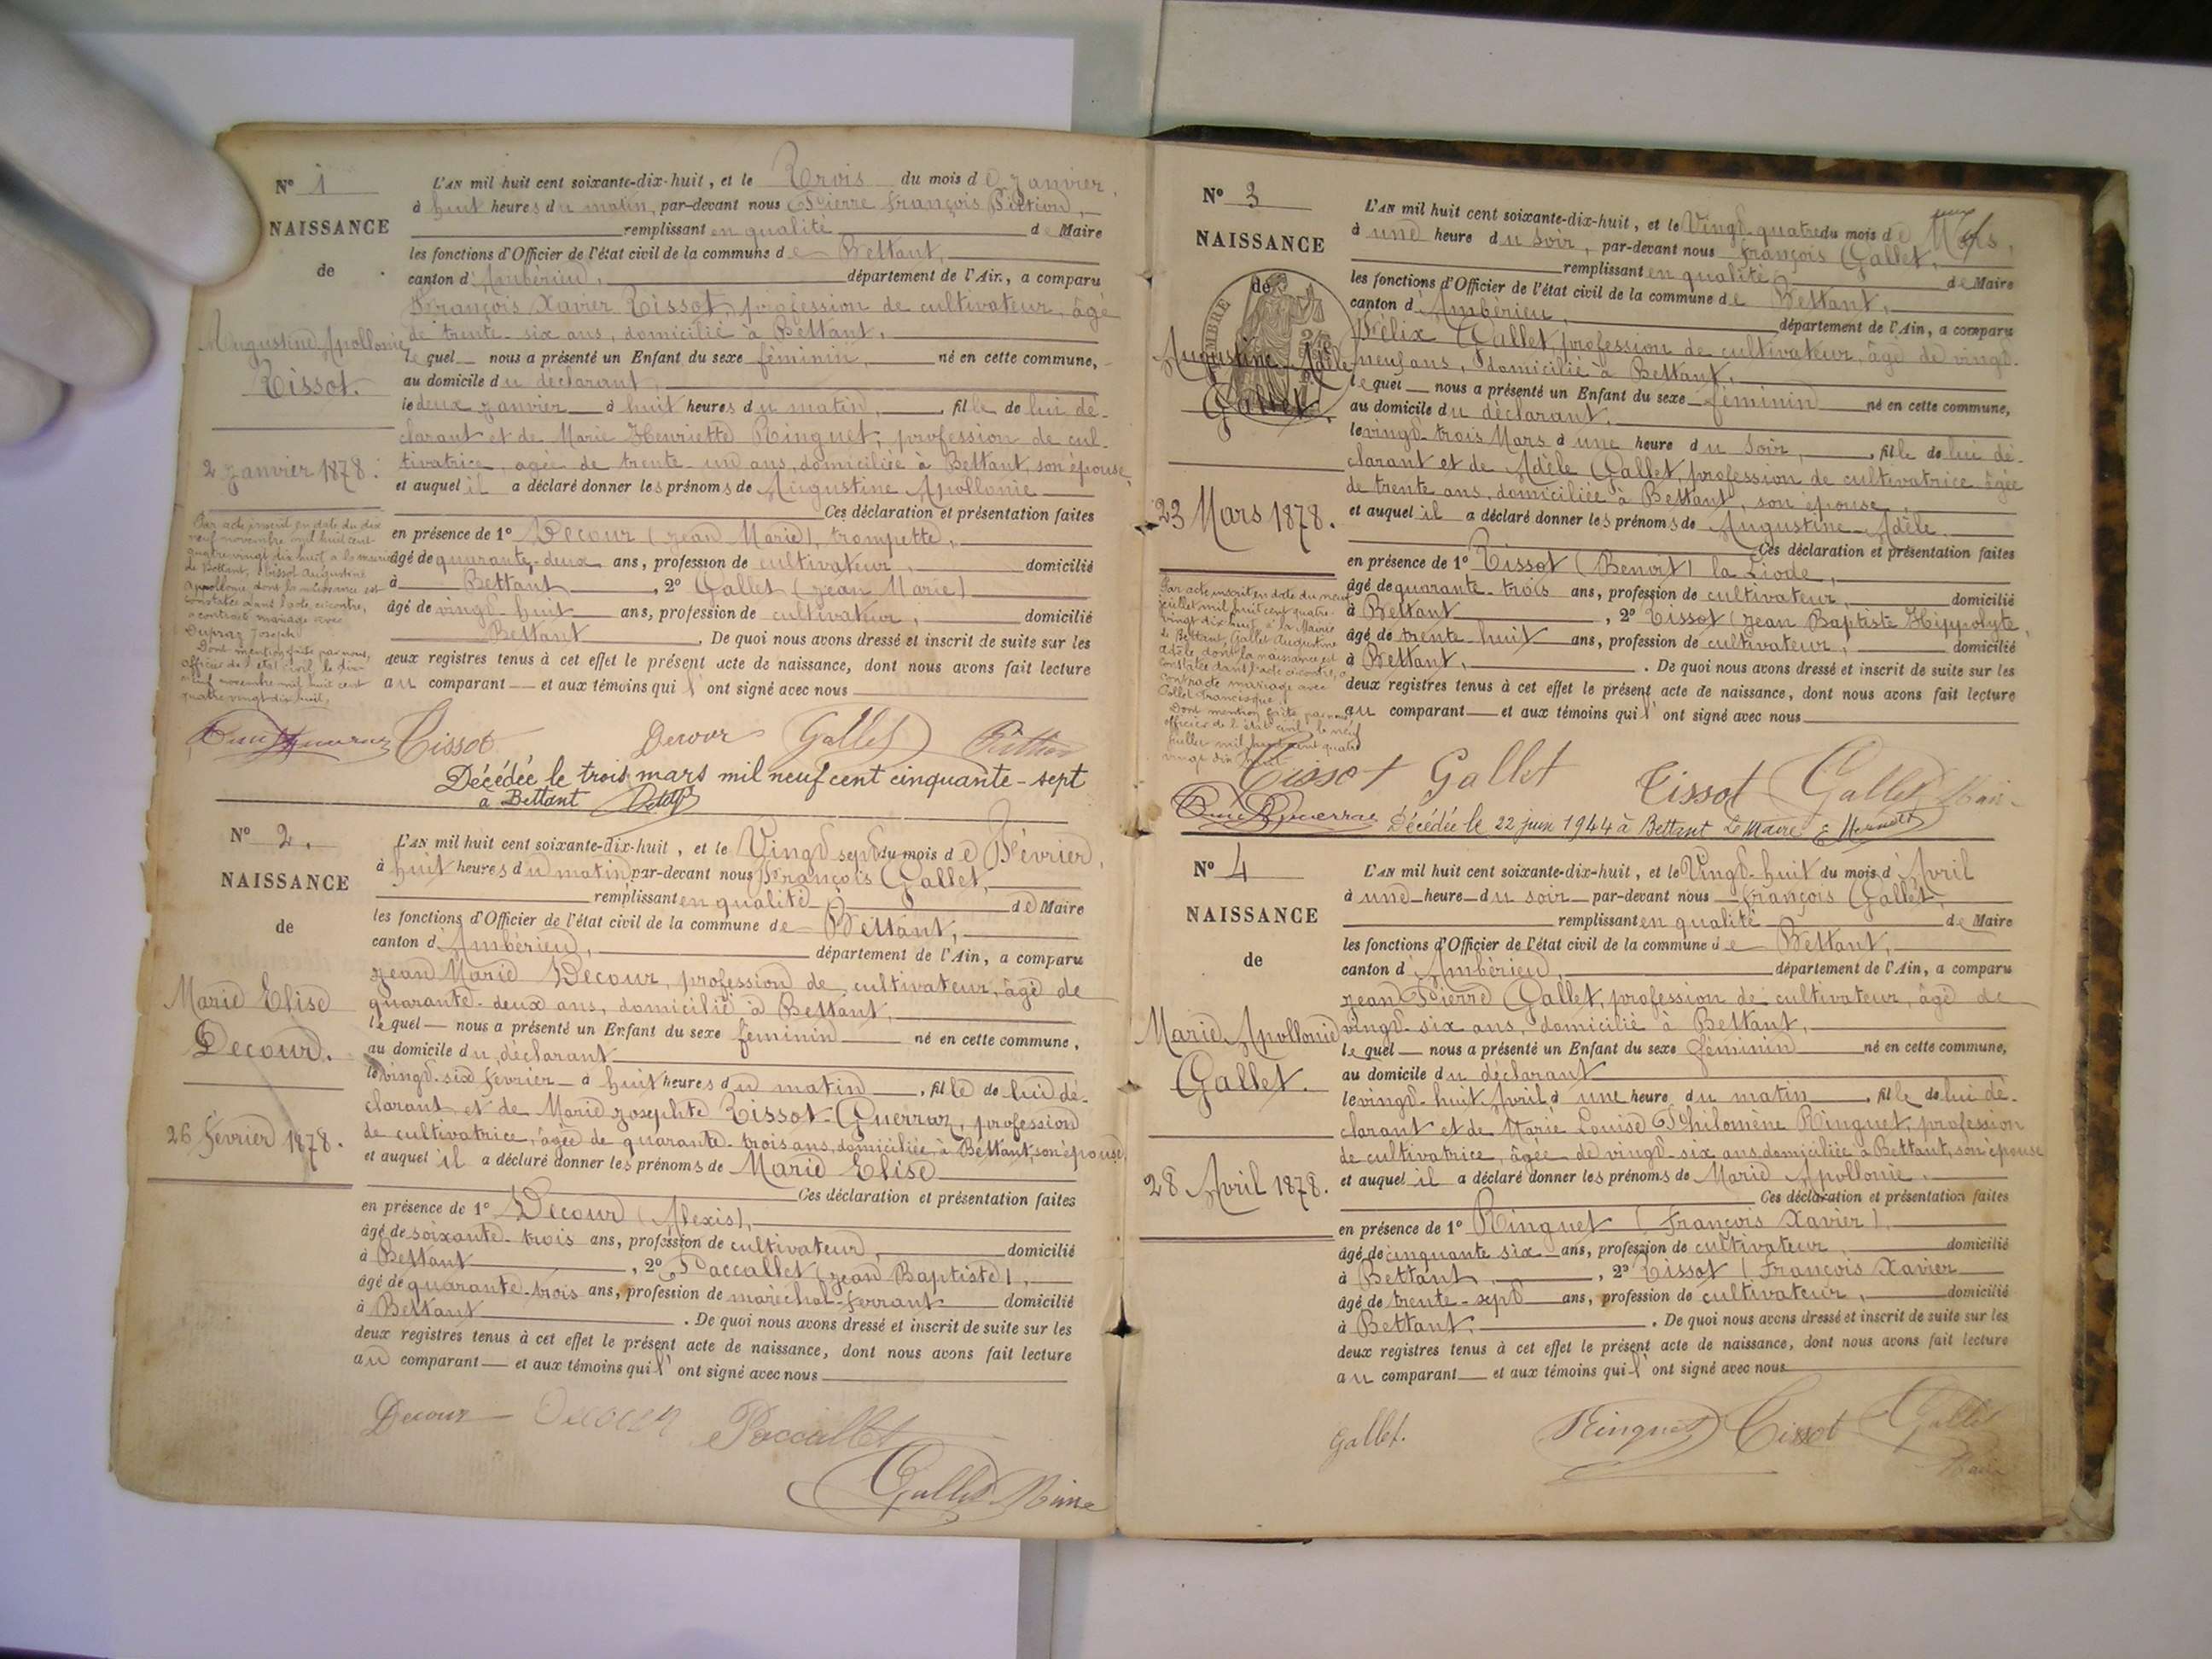 Nº 1
NAISSANCE
de
Augustine Apollonie
Tissot.
2 Janvier 1878.
Par acte inscrit en date du dix
neuf novembre mil huit cent
quatre vingt dix huit, à la mairie
de Bettant, Tissot Augustine
Apollonie dont la naissance est
constatée dans l'acte ci contre,
a contracté mariage avec
Dupraz Joseph
Dont mention faite par nous,
officier de l'état civil, le dix
neuf novembre mil huit cent
quatre vingt dix huit,
L'AN mil huit cent soixante-dix-huit, et le Trois du mois de Janvier,
à huit heures du matin, par-devant nous Pierre François
remplissant en qualité de Maire
les fonctions d'Officier de l'état civil de la commune de Bettant,
canton d'Ambérieu, département de l'Ain, a comparu
François Xavier Tissot, profession de cultivateur, âgé
de trente-six ans, domicilié à Bettant,
lequel nous a présenté un Enfant du sexe féminin, né en cette commune,
au domicile du déclarant,
le deux Janvier à huit heures du matin, fille de lui dé-
clarant et de Marie Henriette Ringuet, profession de cul-
tivatrice, agée de trente-un ans, domiciliée à Bettant, son épouse,
et auquel il a déclaré donner les prénoms de Augustine Apollonie
Ces déclaration et présentation faites
en présence de 1º Decour (Jean Marie), trompette,
âgé de quarante-deux ans, profession de cultivateur, domicilié
à Bettant, 2º Gallet (Jean Marie)
âgé de vingt-huit ans, profession de cultivateur, domicilié
Bettant. De quoi nous avons dressé et inscrit de suite sur les
deux registres tenus à cet effet le présent acte de naissance, dont nous avons fait lecture
au comparant et aux témoins qui l'ont signé avec nous
Tissot Decour Gallet
Décédée le trois mars mil neuf cent cinquante-sept
à Bettant
Nº 2.
NAISSANCE
de
Marie Elise
Decour.
26 Février 1878.
L'AN mil huit cent soixante-dix-huit, et le Vingt sept du mois de Février,
à huit heures du matin par-devant nous François Gallet,
remplissant en qualité de Maire
les fonctions d'Officier de l'état civil de la commune de Bettant,
canton d'Ambérieu, département de l'Ain, a comparu
Jean Marie Decour, profession de cultivateur, âgé de
quarante-deux ans, domicilié à Bettant,
lequel nous a présenté un Enfant du sexe féminin né en cette commune,
au domicile du déclarant
le vingt-six février à huit heures du matin, fille de lui dé-
clarant et de Marie Josephte Tissot-Guerraz, profession
de cultivatrice, âgée de quarante-trois ans, domiciliée à Bettant, son épouse,
et auquel il a déclaré donner les prénoms de Marie Elise
Ces déclaration et présentation faites
en présence de 1º Decour (Alexis),
âgé de soixante-trois ans, profession de cultivateur, domicilié
à Bettant, 2º Paccallet (Jean Baptiste),
âgé de quarante-trois ans, profession de maréchal-ferrant domicilié
à Bettant. De quoi nous avons dressé et inscrit de suite sur les
deux registres tenus à cet effet le présent acte de naissance, dont nous avons fait lecture
au comparant et aux témoins qui l'ont signé avec nous
Decour Decour Paccallet
Gallet Maire
Nº 3
NAISSANCE
de
TIMBRE
Augustine-Adèle
Gallet.
23 Mars 1878.
Par acte inscrit en date du neuf
juillet mil huit cent quatre-
vingt dix huit, à la Mairie
de Bettant, Gallet Augustine
Adèle, dont la naissance est
constatée dans l'acte ci contre, a
contracté mariage avec
Collet Francisque,
Dont mention faite par nous
officier de l'état civil le neuf
juillet mil huit cent quatre
vingt dix huit
L'AN mil huit cent soixante-dix-huit, et le Vingt-quatre du mois de Mars,
à une heure du soir, par-devant nous François Gallet,
remplissant en qualité de Maire
les fonctions d'Officier de l'état civil de la commune de Bettant,
canton d'Ambérieu, département de l'Ain, a comparu
Félix Gallet, profession de cultivateur, âgé de vingt-
neuf ans, domicilié à Bettant,
lequel nous a présenté un Enfant du sexe féminin né en cette commune,
au domicile du déclarant.
le vingt-trois Mars à une heure du soir, fille de lui dé-
clarant et de Adèle Gallet, profession de cultivatrice âgée
de trente ans, domiciliée à Bettant, son épouse,
et auquel il a déclaré donner les prénoms de Augustine-Adèle.
Ces déclaration et présentation faites
en présence de 1º Tissot (Benoit) la Liode,
âgé de quarante-trois ans, profession de cultivateur, domicilié
à Bettant, 2º Tissot (Jean Baptiste Hippolyte,
âgé de trente-huit ans, profession de cultivateur, domicilié
à Bettant. De quoi nous avons dressé et inscrit de suite sur les
deux registres tenus à cet effet le présent acte de naissance, dont nous avons fait lecture
au comparant et aux témoins qui l'ont signé avec nous
Tissot Gallet Tissot Gallet Maire
Décédée le 22 juin 1944 à Bettant Le Maire
Nº 4
NAISSANCE
de
Marie Apollonie
Gallet.
28 Avril 1878.
L'AN mil huit cent soixante-dix-huit, et le Vingt-huit du mois d'Avril
à une heure du soir par-devant nous François Gallet,
remplissant en qualité de Maire
les fonctions d'Officier de l'état civil de la commune de Bettant,
canton d'Ambérieu, département de l'Ain, a comparu
Jean Pierre Gallet, profession de cultivateur, âgé de
vingt-six ans, domicilié à Bettant,
lequel nous a présenté un Enfant du sexe féminin né en cette commune,
au domicile du déclarant
le vingt-huit Avril à une heure du matin, fille de lui dé-
clarant et de Marie Louise Philomène Ringuet, profession
de cultivatrice, âgée de vingt-six ans, domiciliée à Bettant, son épouse
et auquel il a déclaré donner les prénoms de Marie Apollonie.
Ces déclaration et présentation faites
en présence de 1º Ringuet (François Xavier),
âgé de cinquante six ans, profession de cultivateur, domicilié
à Bettant, 2º Tissot (François Xavier
âgé de trente-sept ans, profession de cultivateur, domicilié
à Bettant. De quoi nous avons dressé et inscrit de suite sur les
deux registres tenus à cet effet le présent acte de naissance, dont nous avons fait lecture
au comparant et aux témoins qui l'ont signé avec nous
Gallet. Ringuet Tissot Gallet
Maire